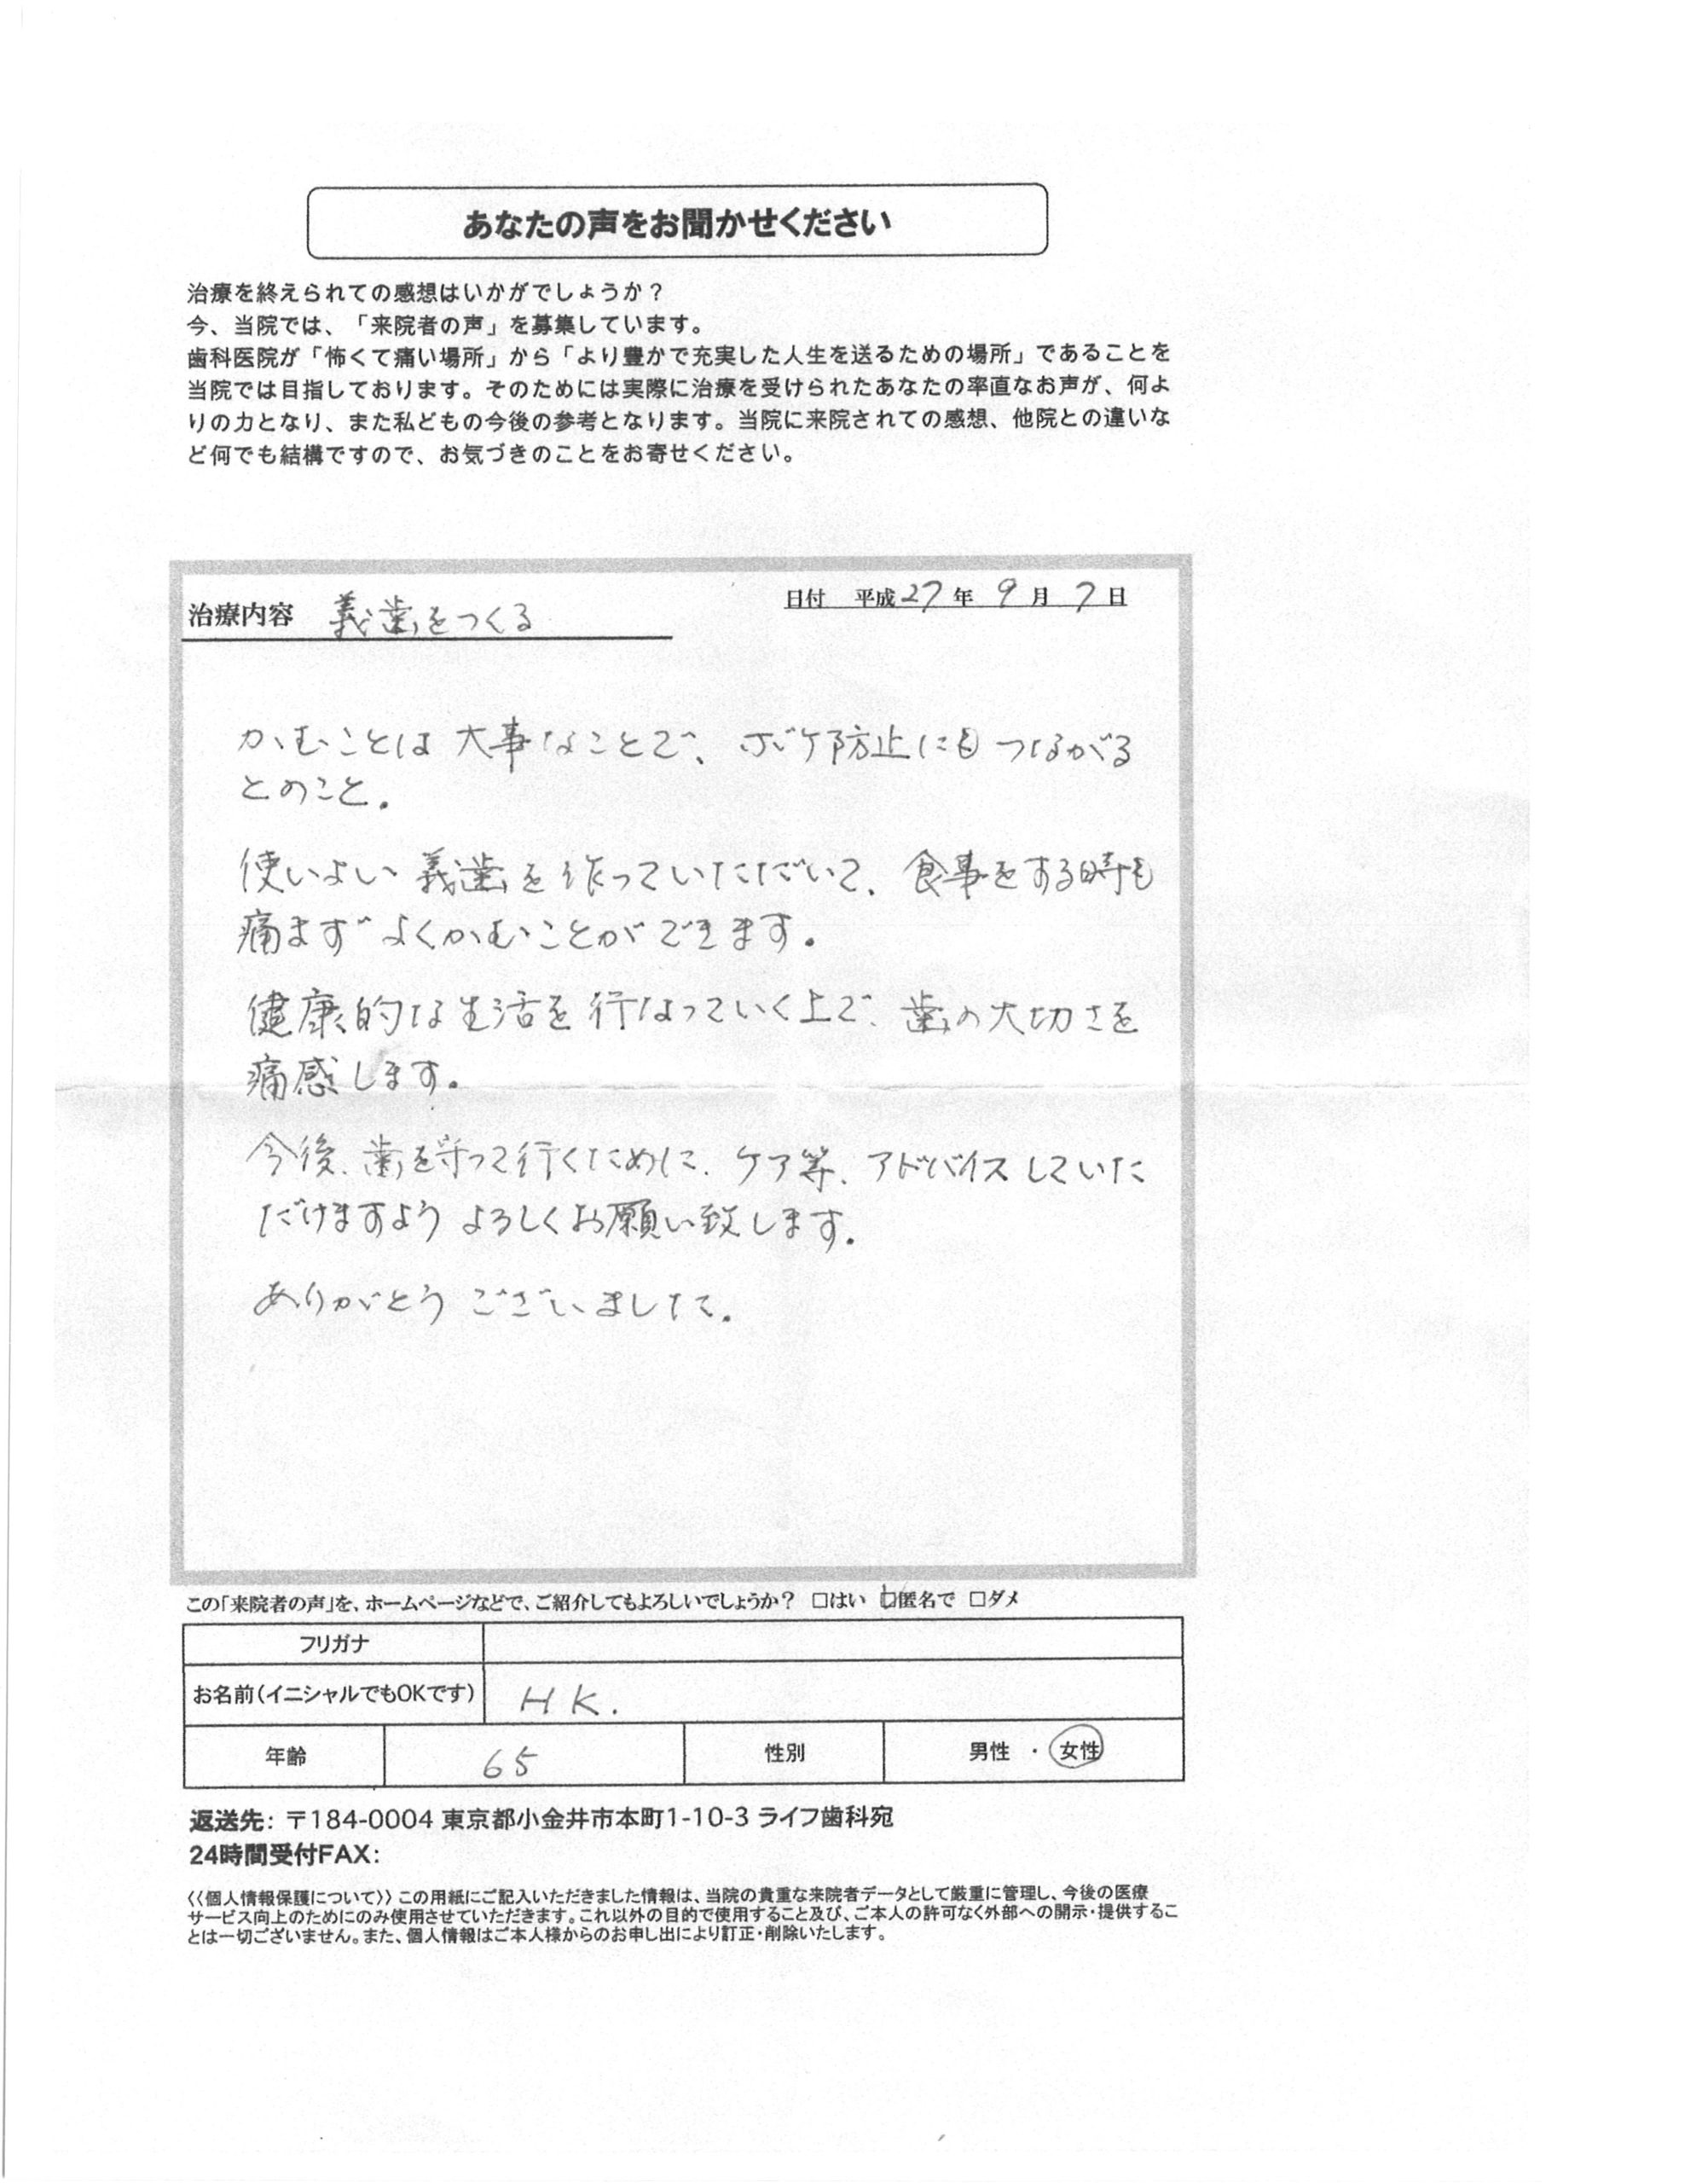 あなたの声をお聞かせください
治療を終えられての感想はいかがでしょうか？
今、当院では、「来院者の声」を募集しています。
歯科医院が「怖くて痛い場所」から「より豊かで充実した人生を送るための場所」であることを
当院では目指しております。そのためには実際に治療を受けられたあなたの率直なお声が、何よ
りの力となり、また私どもの今後の参考となります。当院に来院されての感想、他院との違いな
ど何でも結構ですので、お気づきのことをお寄せください。
日付 平成27年 9月 7日
治療内容 義歯をつくる
かむことは大事なことで、ボケ防止にもつながる
とのこと。
使いよい義歯を作っていただいて、食事をする時も
痛まずよくかむことができます。
健康的な生活を行なっていく上で、歯の大切さを
痛感します。
今後、歯を守って行くために、ケア等、アドバイスしていた
だけますようよろしくお願い致します。
ありがとうございました。
この「来院者の声」を、ホームページなどで、ご紹介してもよろしいでしょうか？ □はい □匿名で □ダメ
フリガナ
お名前(イニシャルでもOKです) H K.
年齢 65 性別 男性 ・ 女性
返送先: 〒184-0004 東京都小金井市本町1-10-3 ライフ歯科宛
24時間受付FAX:
〈〈個人情報保護について〉〉この用紙にご記入いただきました情報は、当院の貴重な来院者データとして厳重に管理し、今後の医療
サービス向上のためにのみ使用させていただきます。これ以外の目的で使用すること及び、ご本人の許可なく外部への開示・提供するこ
とは一切ございません。また、個人情報はご本人様からのお申し出により訂正・削除いたします。